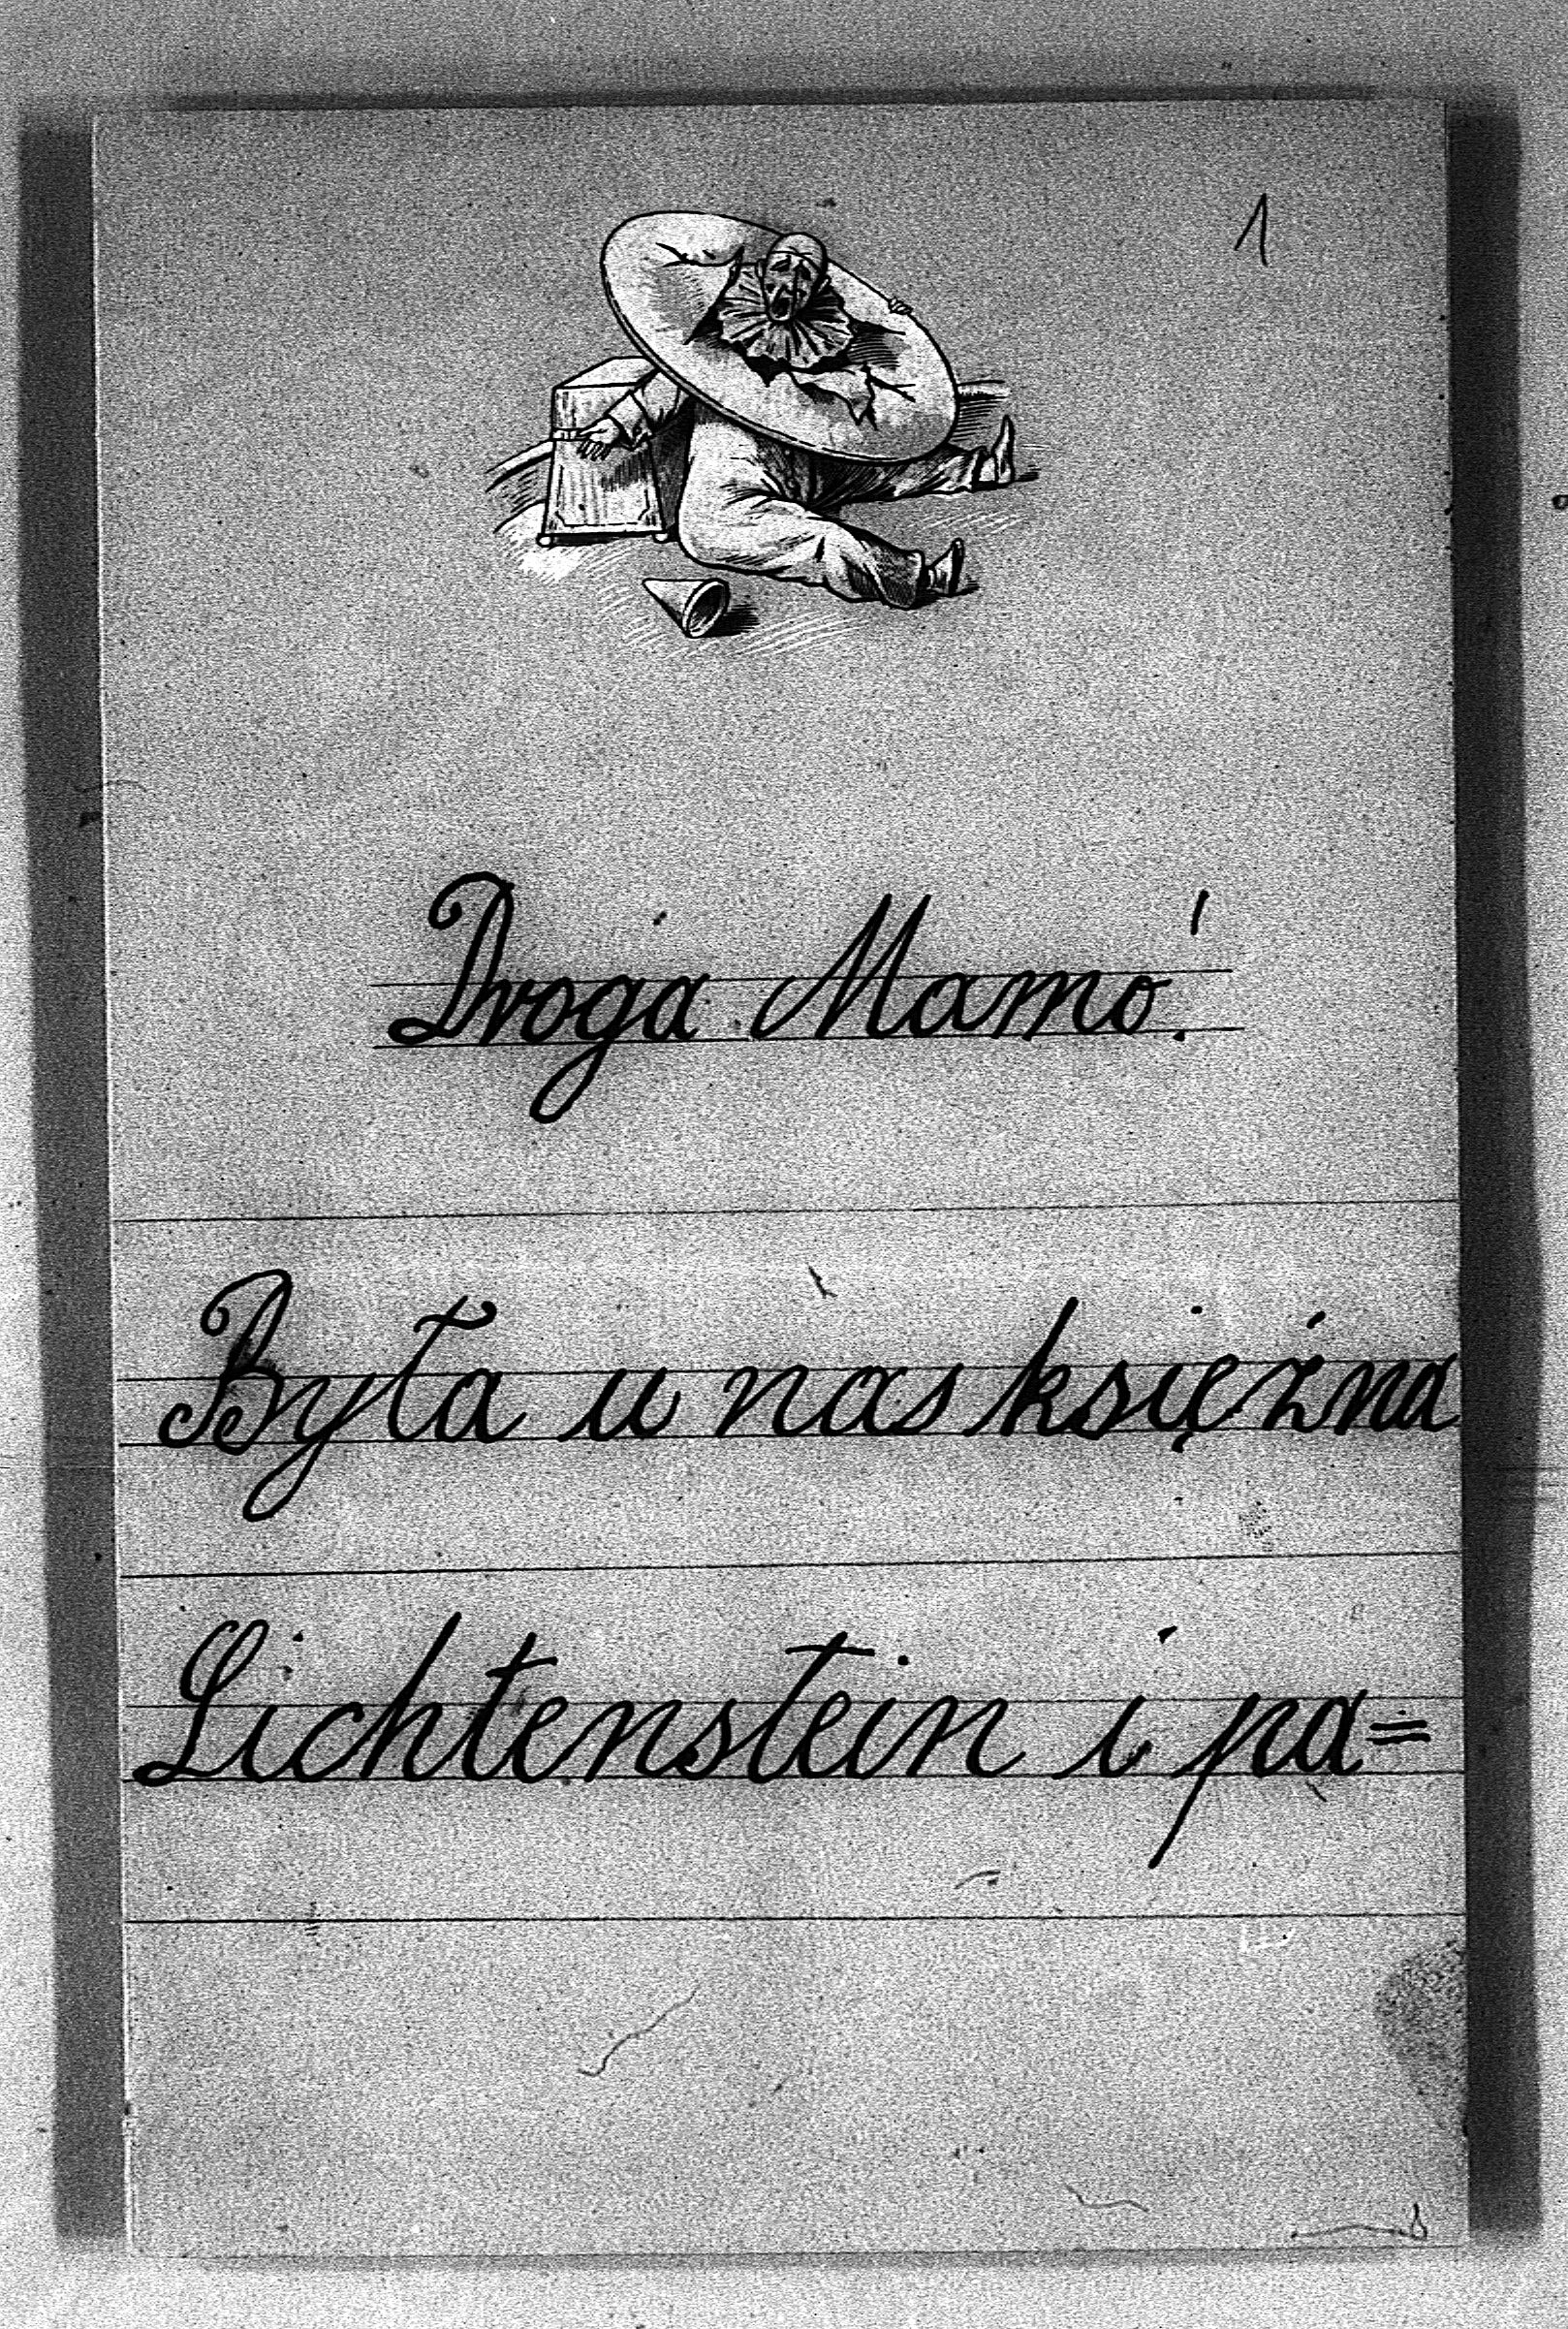 1
Droga Mamo!
Była u nas księżna
Lichtenstein i pa=